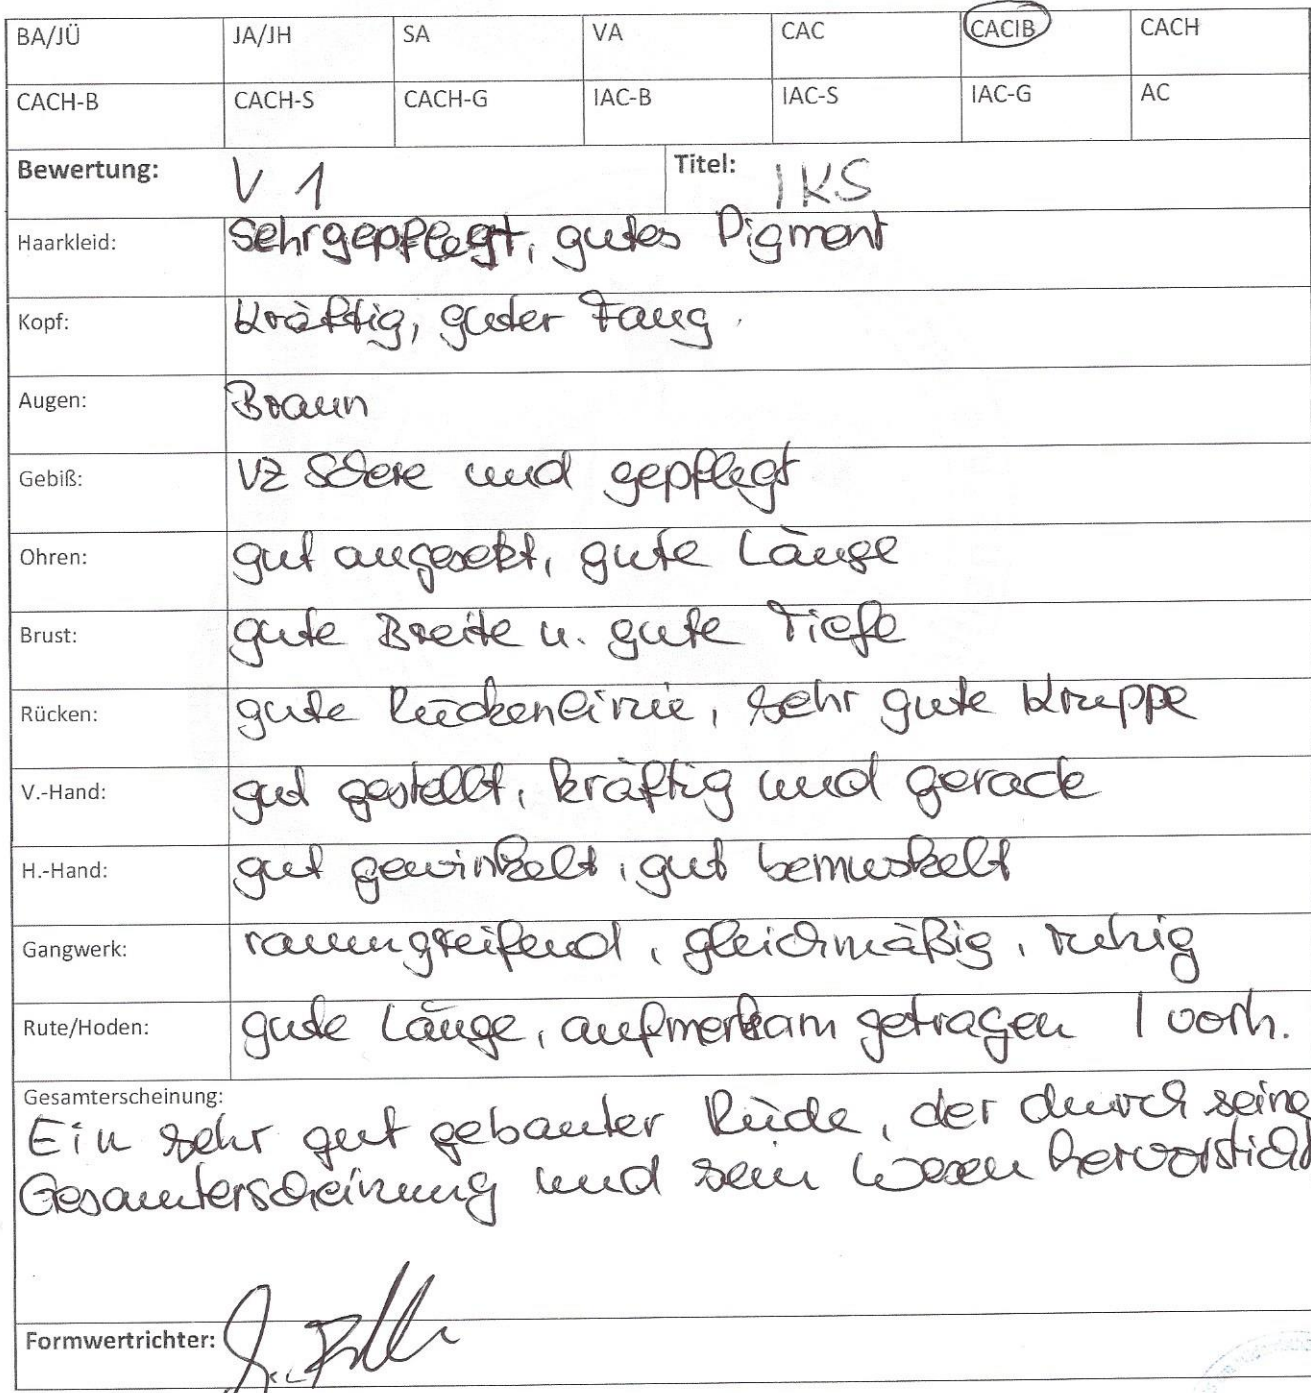 BA/JÜ JA/JH SA VA CAC CACIB CACH
CACH-B CACH-S CACH-G IAC-B IAC-S IAC-G AC
Bewertung: V 1 Titel: IKS
Haarkleid: Sehr gepflegt, gutes Pigment
Kopf: kräftig, guter Fang.
Augen: Braun
Gebiß: VZ Schere und gepflegt
Ohren: gut angesetzt, gute Länge
Brust: gute Breite u. gute Tiefe
Rücken: gute Rückenlinie, sehr gute Kruppe
V.-Hand: gut gestellt, kräftig und gerade
H.-Hand: gut gewinkelt, gut bemuskelt
Gangwerk: raumgreifend, gleichmäßig, ruhig
Rute/Hoden: gute Länge, aufmerksam getragen / vorh.
Gesamterscheinung:
Ein sehr gut gebauter Rüde, der durch seine
Gesamterscheinung und sein Wesen hervorsticht
Formwertrichter: